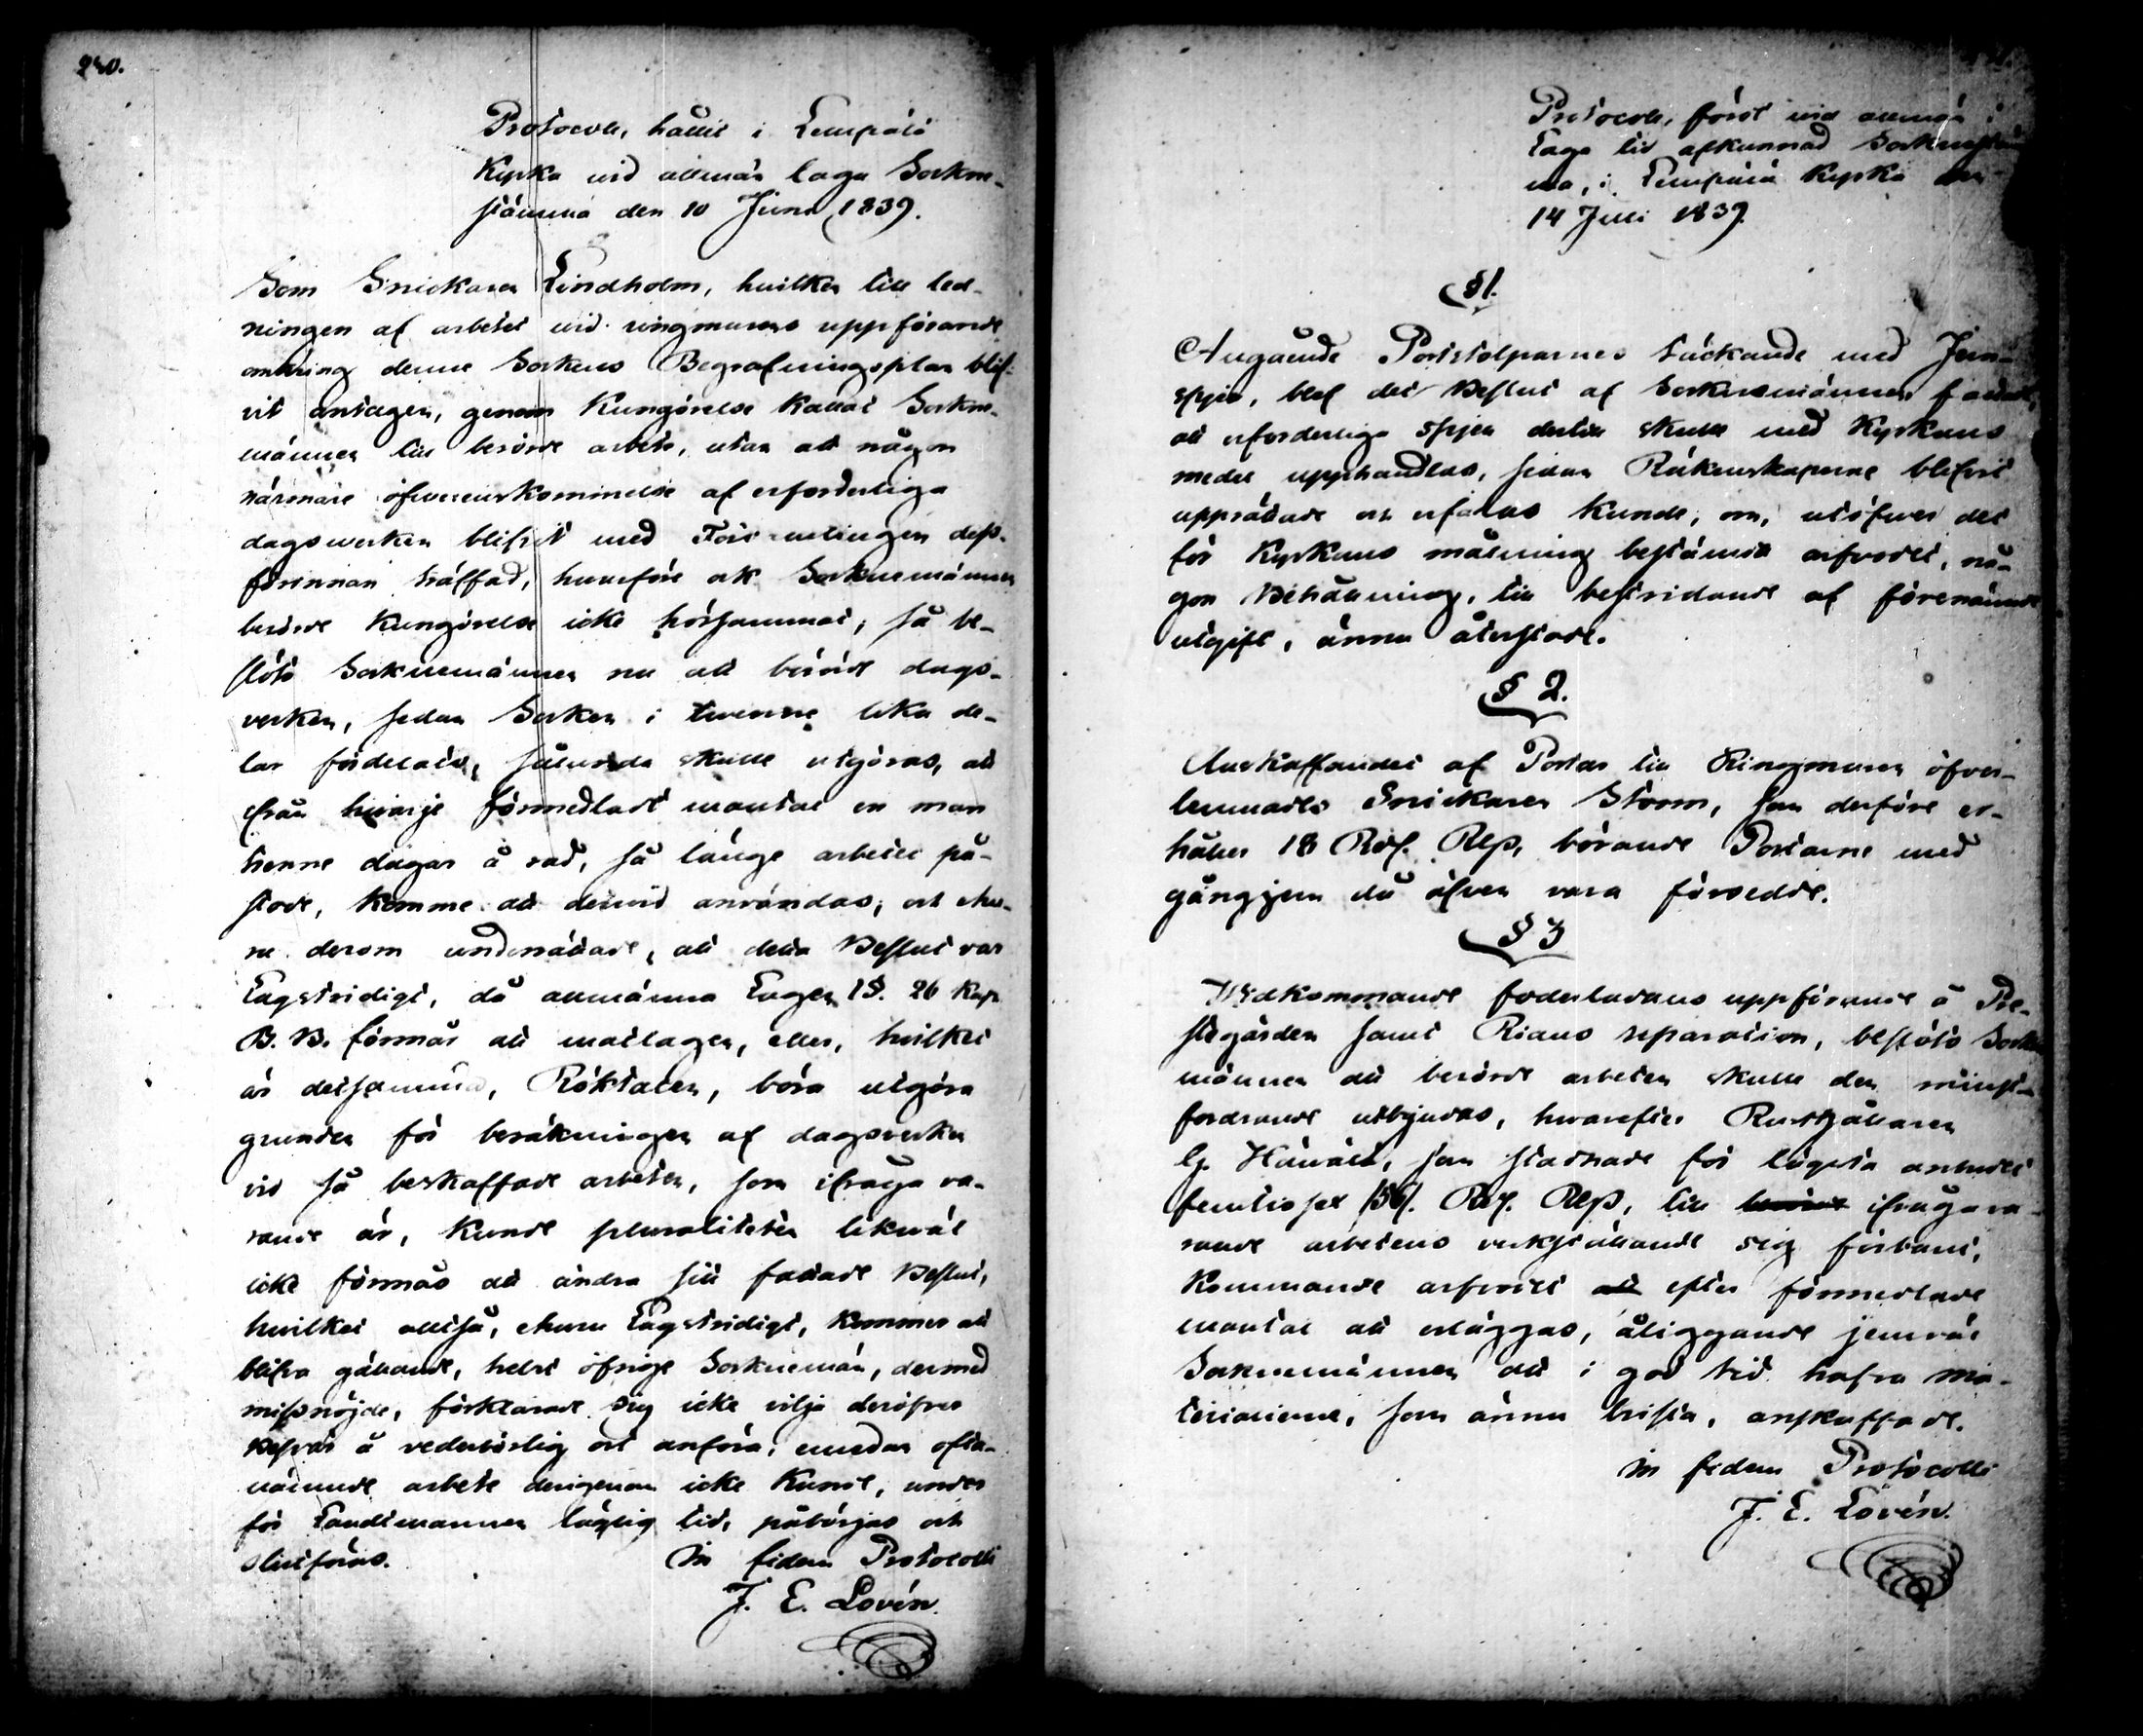 240.
Protocoll, hållit i Lempälä
Kyrka vid allmän laga Sockne-
stämma den 10 Juni 1839.
Som Snickaren Lindholm, hvilken till led-
ningen af arbetet vid ringmurens uppförande
omkring denne Sockens Begrafningsplan blif-
vit antagen, genom Kungörelse kallat Sockne-
männen till berörde arbete, utan att någon
närmare öfverenskommelse af erforderliga
dagsverken blifvit med Församlingen dess-
förinnan träffad, hvarföre ock Socknemännen
berörde Kungörelse icke hörsammat; så be-
slöto Socknemännen nu att berörde dags-
verken, sedan Socken i tvenne lika de-
lar fördelats, sålunda skulle utgöras, att
ifrån hvarje förmedladt mantal en man
trenne dagar å rad, så länge arbetet på-
stode, komme att dervid användas; och ehu-
ru derom underrättade, att detta Beslut var
Lagstridigt, då allmänna Lagen 1 §. 26 Kap.
B. B. förmår att matlagen, eller, hvilket
är detsamma, Röktalen, böra utgöra
grunden för beräkningen af dagsverken
vid så beskaffade arbeten, som ifråga va-
rande är, kunde pluraliteten likväl
icke förmås att ändra sitt fattade Beslut,
hvilket alltså, ehuru Lagstridigt, kommer att
blifva gällande, helst öfrige Socknemän, dermed
missnöjde, förklarade sig icke vilja deröfver
Besvär å vederbörlig ort anföra; emedan ofta-
nämnde arbete derigenom icke kunde, under
för Landtmannen läglig tid, påbörjas och
slutföras. In fidem Protocolli
J. E. Lovén.
Protocoll, fördt vid allmän i
Laga tid afkunnad Socknestäm
ma, i Lempälä Kyrka den
14 Juli 1839.
§ 1.
Angående Portstolparnes täckande med Jern-
spjer, blef det Beslut af Socknemännen fattadt,
att erforderlige Spjer dertill skulle med Kyrkans
medel upphandlas, sedan Räkenskaperne blifvit
upprättade och erfaras kunde, om, utöfver det
för Kyrkans målning bestämda arfvodet, nå-
gon Behållning, till bestridande af förenämnde
utgift, ännu återstode.
§ 2.
Anskaffandet af Portar till Ringmuren öfver-
lemnades Snickaren Storm, som derföre er-
håller 18 Rdr. Rbg, börande Portarne med
gångjern då äfven vara försedde.
§ 3
Vidkommande foderladans uppförande å Pre-
stegården samt Rians reparation, beslöto Sockne
männen att berörde arbeten skulle den minst-
fordrande utbjudas, hvarefter Rusthållaren
G. Hännilä, som stadnade för lägsta anbudet
femtiosex (56). Rdr. Rbg, till ifrågava-
rande arbetens verkställande sig förband,
kommande arfvodet att efter förmedlade
mantal att erläggas, åliggande jemväl
Socknemännen att i god tid hafva ma-
terialierne, som ännu brista, anskaffade.
In fidem Protocolli
J. E. Lovén.